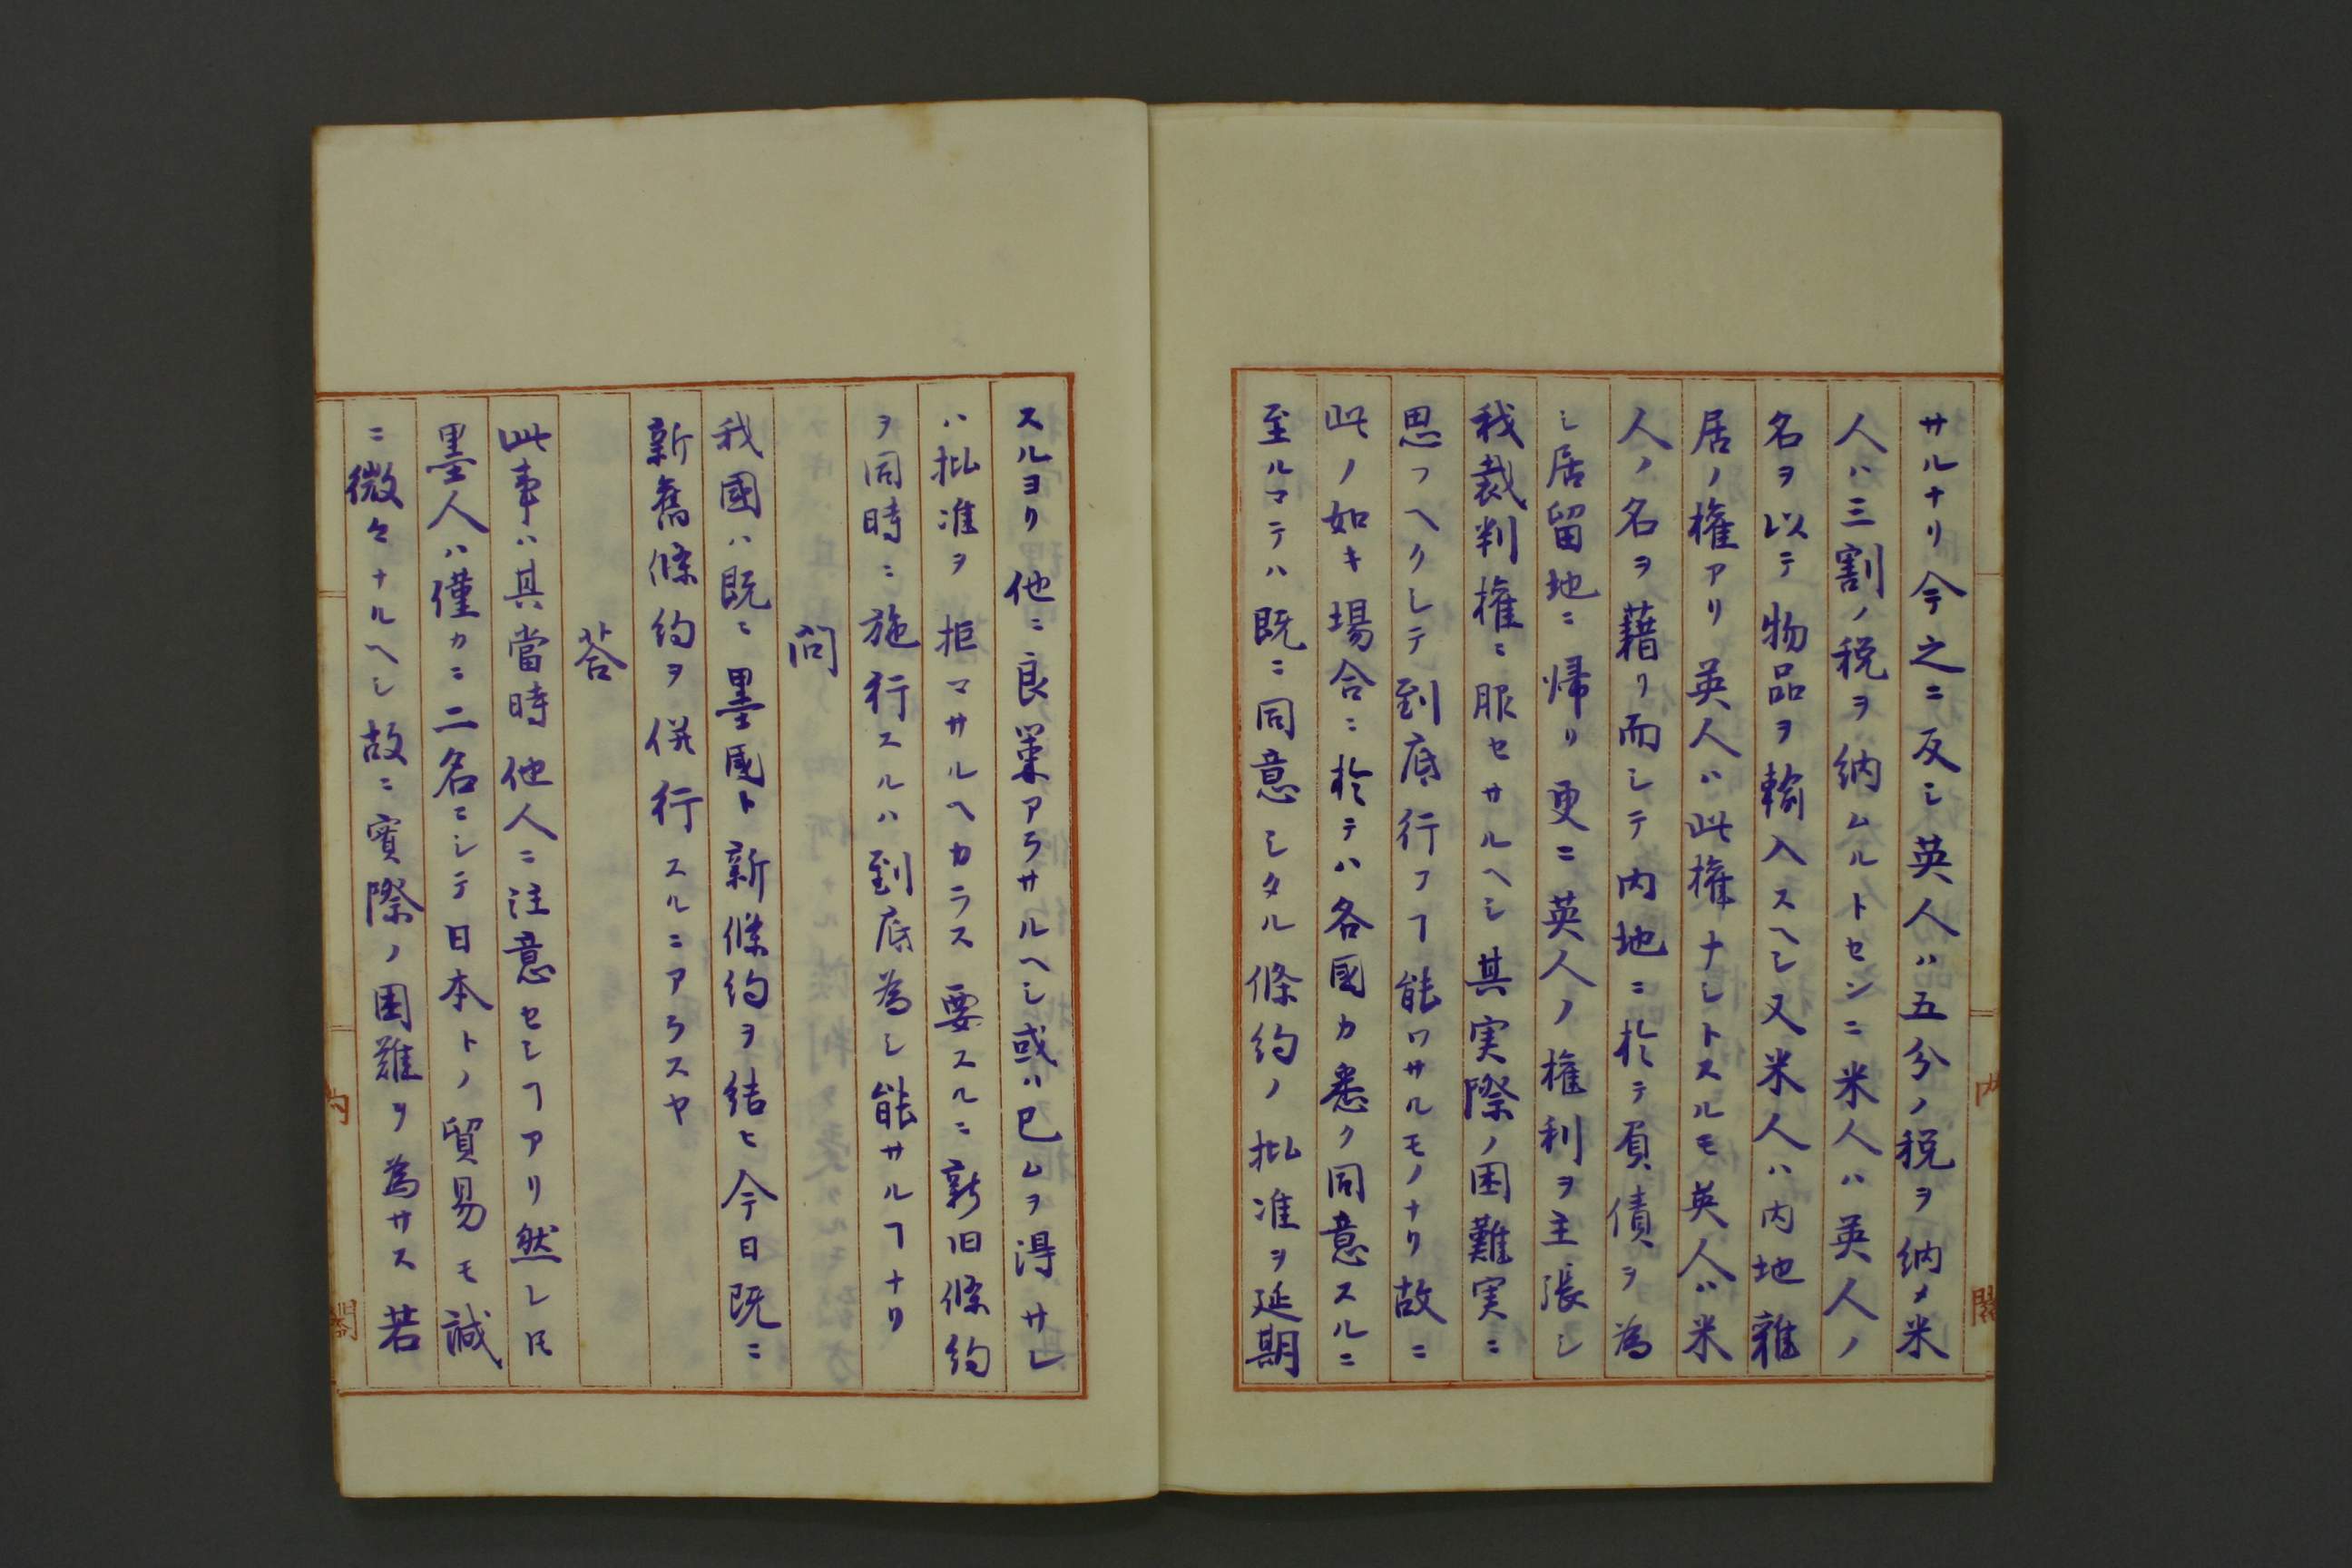 サルナリ今之ニ反シ英人ハ五分ノ税ヲ納メ米
人ハ三割ノ税ヲ納ムルトセンニ米人ハ英人ノ
名ヲ以テ物品ヲ輸入スヘシ又米人ハ内地雜
居ノ権アリ英人ハ此権ナシトスルモ英人ハ米
人ノ名ヲ藉リ而シテ内地ニ於テ負債ヲ為
シ居留地ニ帰リ更ニ英人ノ権利ヲ主張シ
我裁判権ニ服セサルヘシ其実際ノ困難実ニ
思フヘクシテ到底行フヿ能ワサルモノナリ故ニ
此ノ如キ場合ニ於テハ各國カ悉ク同意スルニ
至ルマテハ既ニ同意シタル條約ノ批准ヲ延期
スルヨリ他ニ良策アラサルヘシ或ハ已ムヲ得サレ
ハ批准ヲ拒マサルヘカラス要スルニ新旧條約
ヲ同時ニ施行スルハ到底為シ能サルヿナリ
問
我國ハ既ニ墨國ト新條約ヲ結ヒ今日既ニ
新舊條約ヲ併行スルニアラスヤ
荅
此事ハ其當時他人ニ注意セシヿアリ然レ𪜈
墨人ハ僅カニ二名ニシテ日本トノ貿易モ誠
ニ微々ナルヘシ故ニ實際ノ困難ヲ為サス若
内
閣